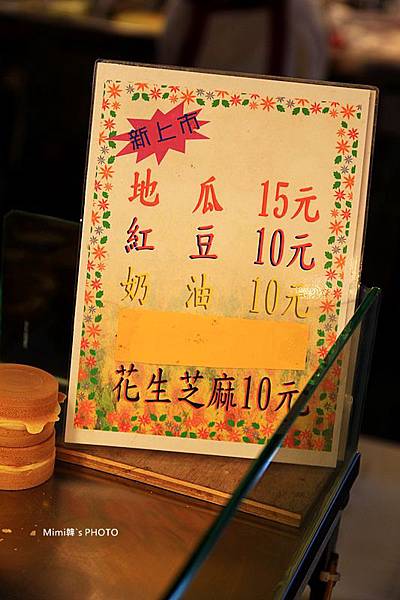 新上市
地瓜 15元
紅豆 10元
奶油 10元
花生芝麻10元
Mimi韓's PHOTO